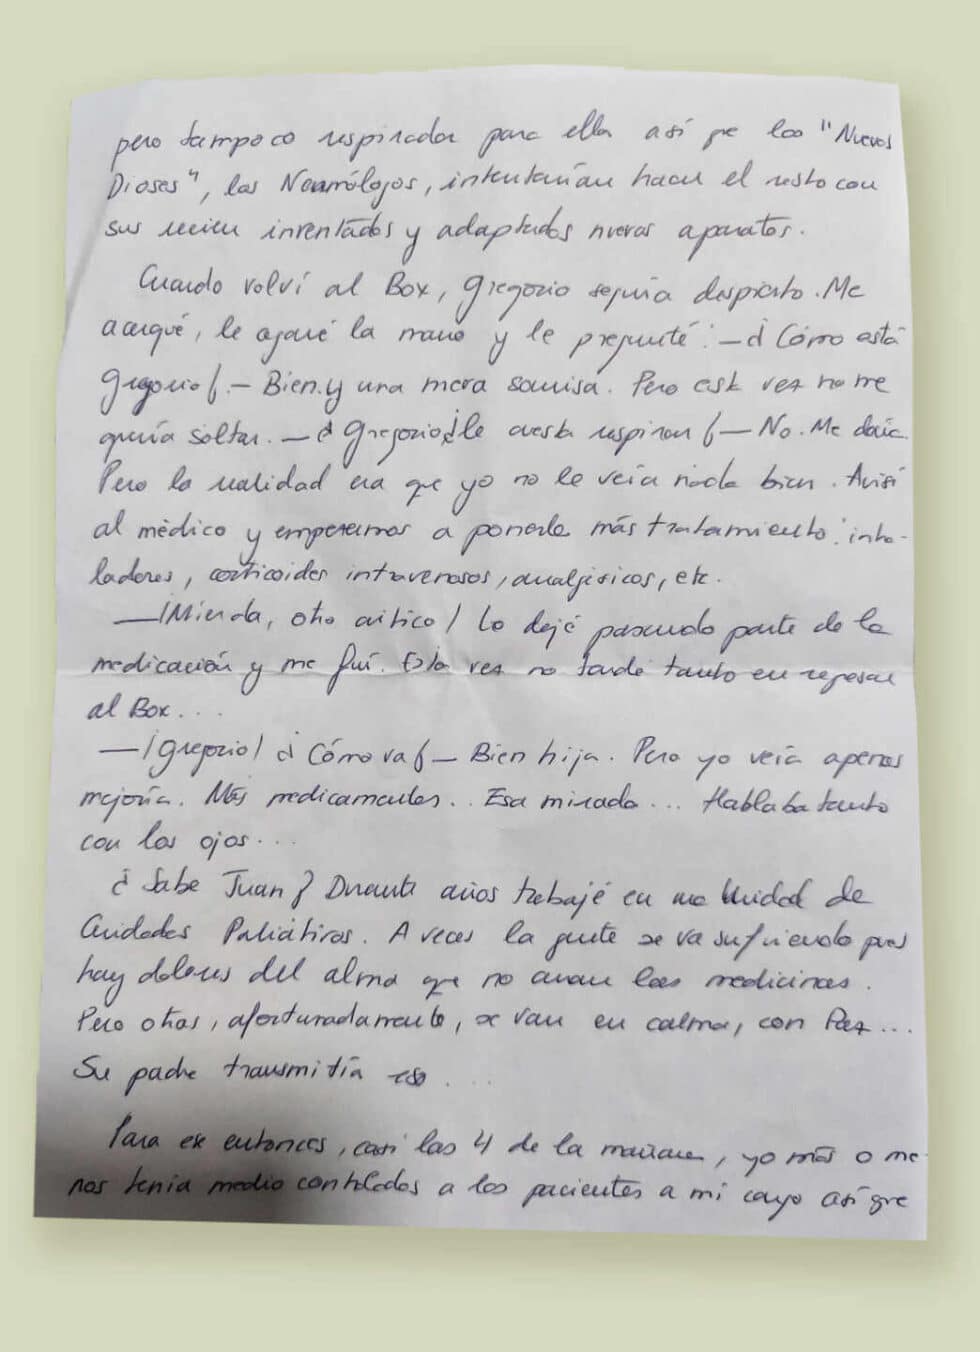 pero tampoco respirador para ella así que los "Nuevos
Dioses", los Neumólogos, intentarían hacer el resto con
sus recien inventados y adaptados nuevos aparatos.
Cuando volví al Box, Gregorio seguía despierto. Me
acerqué, le agarré la mano y le pregunté: - ¿Cómo está
Gregorio?. - Bien. y una mera sonrisa. Pero esta vez no me
quería soltar. - ¿Gregorio, le cuesta respirar? - No. Me decía.
Pero la realidad era que yo no le veía nada bien. Avisé
al médico y empezamos a ponerle más tratamiento: inha-
ladores, corticoides intravenosos, analgésicos, etc.
- ¡Mierda, otro crítico! Lo dejé pasando parte de la
medicación y me fuí. Esta vez no tardé tanto en regresar
al Box...
- ¡Gregorio! ¿Cómo va? - Bien hija. Pero yo veía apenas
mejoría. Más medicamentos.. Esa mirada... Hablaba tanto
con los ojos...
¿Sabe Juan? Durante años trabajé en una Unidad de
Cuidados Paliativos. A veces la gente se va sufriendo pues
hay dolores del alma que no curan las medicinas.
Pero otras, afortunadamente, se van en calma, con Paz...
Su padre transmitía eso....
Para ese entonces, casi las 4 de la mañana, yo más o me-
nos tenía medio controlados a los pacientes a mi cargo así que